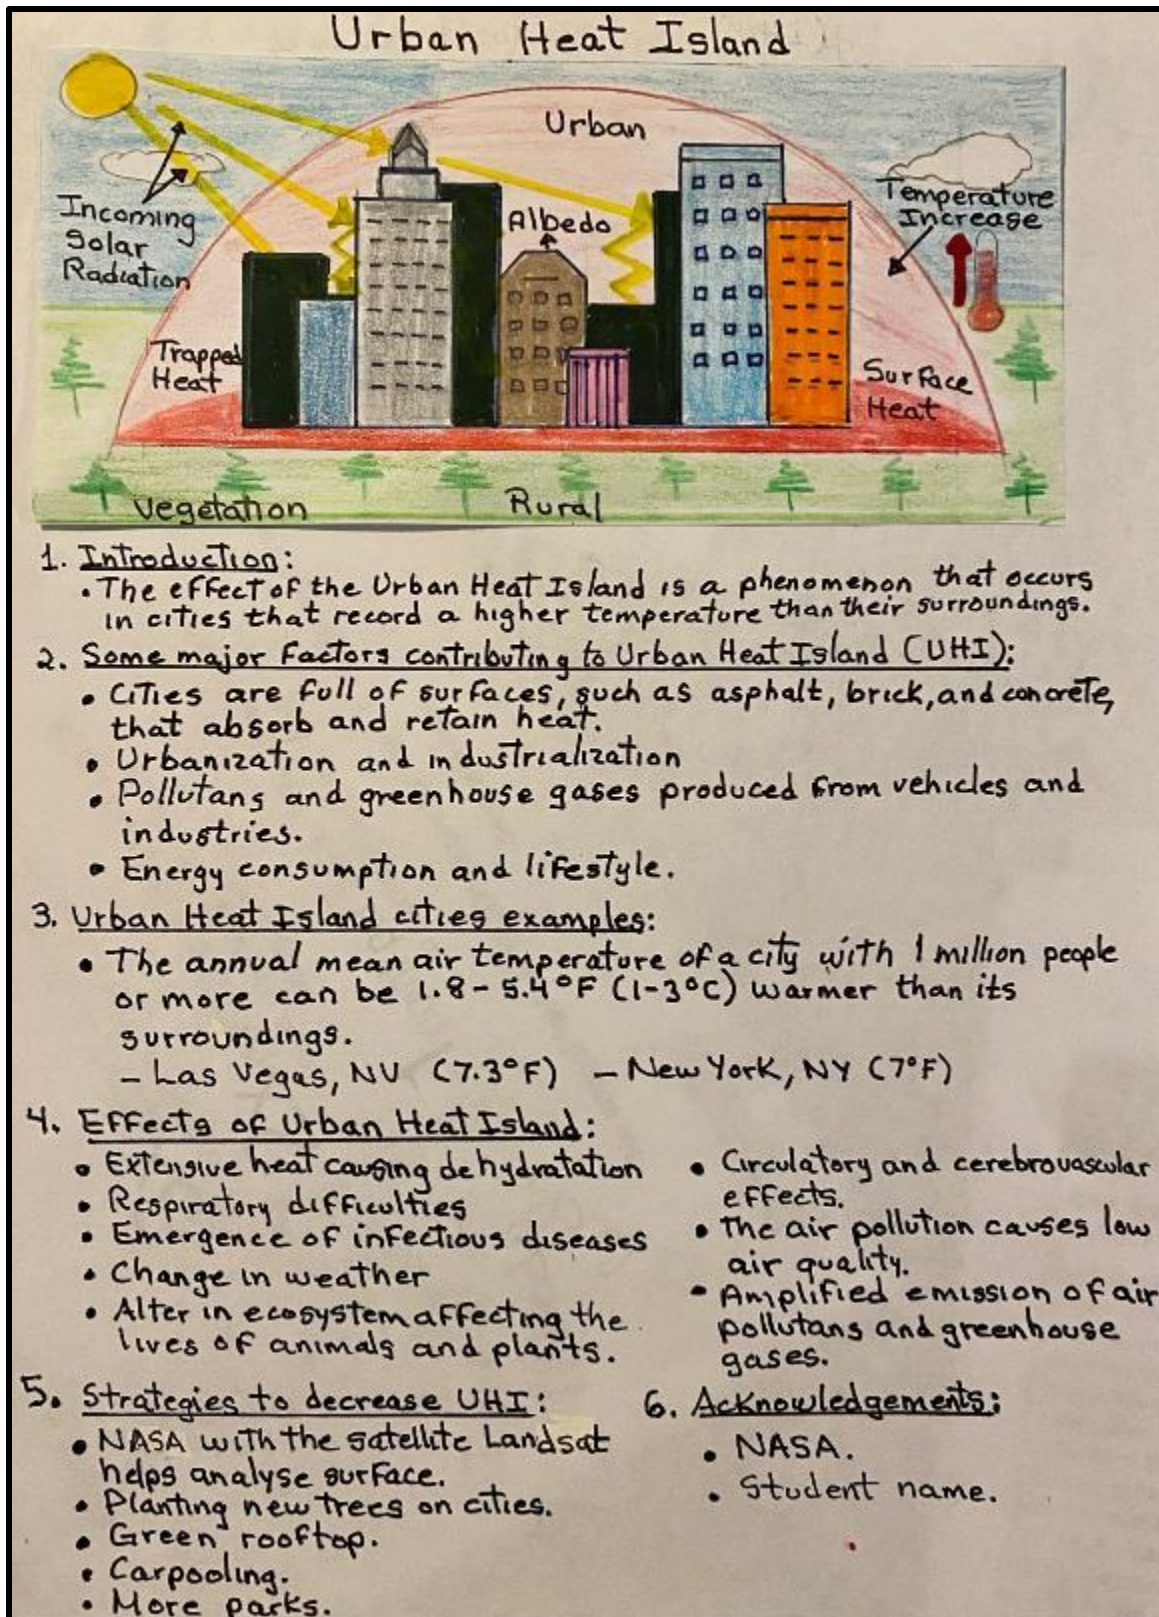 Urban Heat Island
Urban
Incoming
Solar
Radiation
Albedo
Temperature
Increase
Trapped
Heat
Surface
Heat
Vegetation
Rural
1. Introduction:
• The effect of the Urban Heat Island is a phenomenon that occurs
in cities that record a higher temperature than their surroundings.
2. Some major factors contributing to Urban Heat Island (UHI):
• Cities are full of surfaces, such as asphalt, brick, and concrete,
that absorb and retain heat.
• Urbanization and industrialization
• Pollutans and greenhouse gases produced from vehicles and
industries.
• Energy consumption and lifestyle.
3. Urban Heat Island cities examples:
• The annual mean air temperature of a city with 1 million people
or more can be 1.8-5.4°F (1-3°C) warmer than its
surroundings.
- Las Vegas, NV (7.3°F) - New York, NY (7°F)
4. Effects of Urban Heat Island:
• Extensive heat causing dehydratation
• Respiratory difficulties
• Emergence of infectious diseases
• Change in weather
• Alter in ecosystem affecting the
lives of animals and plants.
• Circulatory and cerebrovascular
effects.
• The air pollution causes low
air quality.
• Amplified emission of air
pollutans and greenhouse
gases.
5. Strategies to decrease UHI:
• NASA with the satellite Landsat
helps analyse surface.
• Planting new trees on cities.
• Green rooftop.
• Carpooling.
• More parks.
6. Acknowledgements:
• NASA.
• Student name.